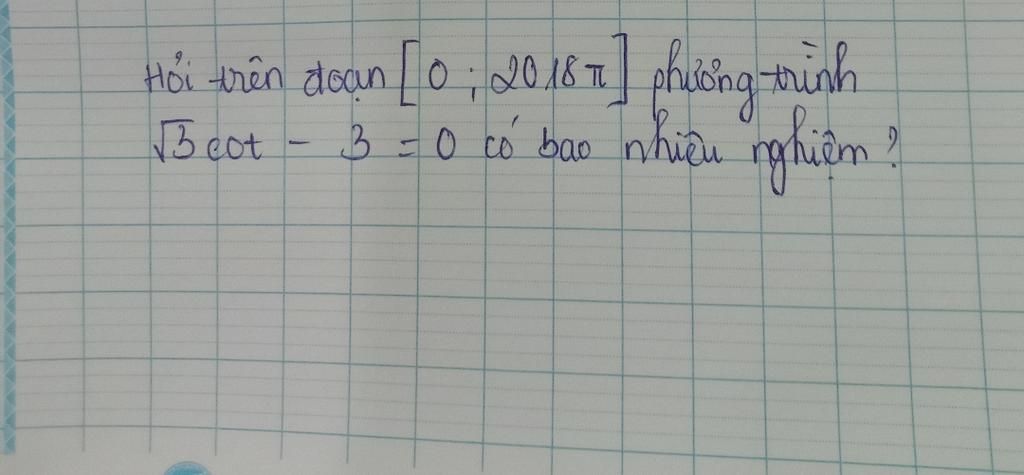 Hỏi trên đoạn [0 ; 2018π] phương trình
√3 cot - 3 = 0 có bao nhiêu nghiệm ?